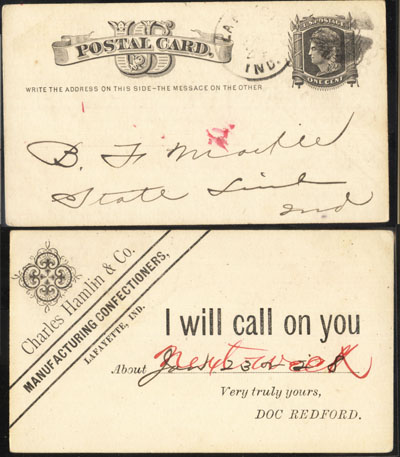 US
POSTAL CARD.
U.S. POSTAGE
ONE CENT
LA
IND.
WRITE THE ADDRESS ON THIS SIDE-THE MESSAGE ON THE OTHER
B. F.
State Line
Ind
Charles Hamlin & Co.
MANUFACTURING CONFECTIONERS,
LAFAYETTE, IND.
I will call on you
About next week
Very truly yours,
DOC REDFORD.